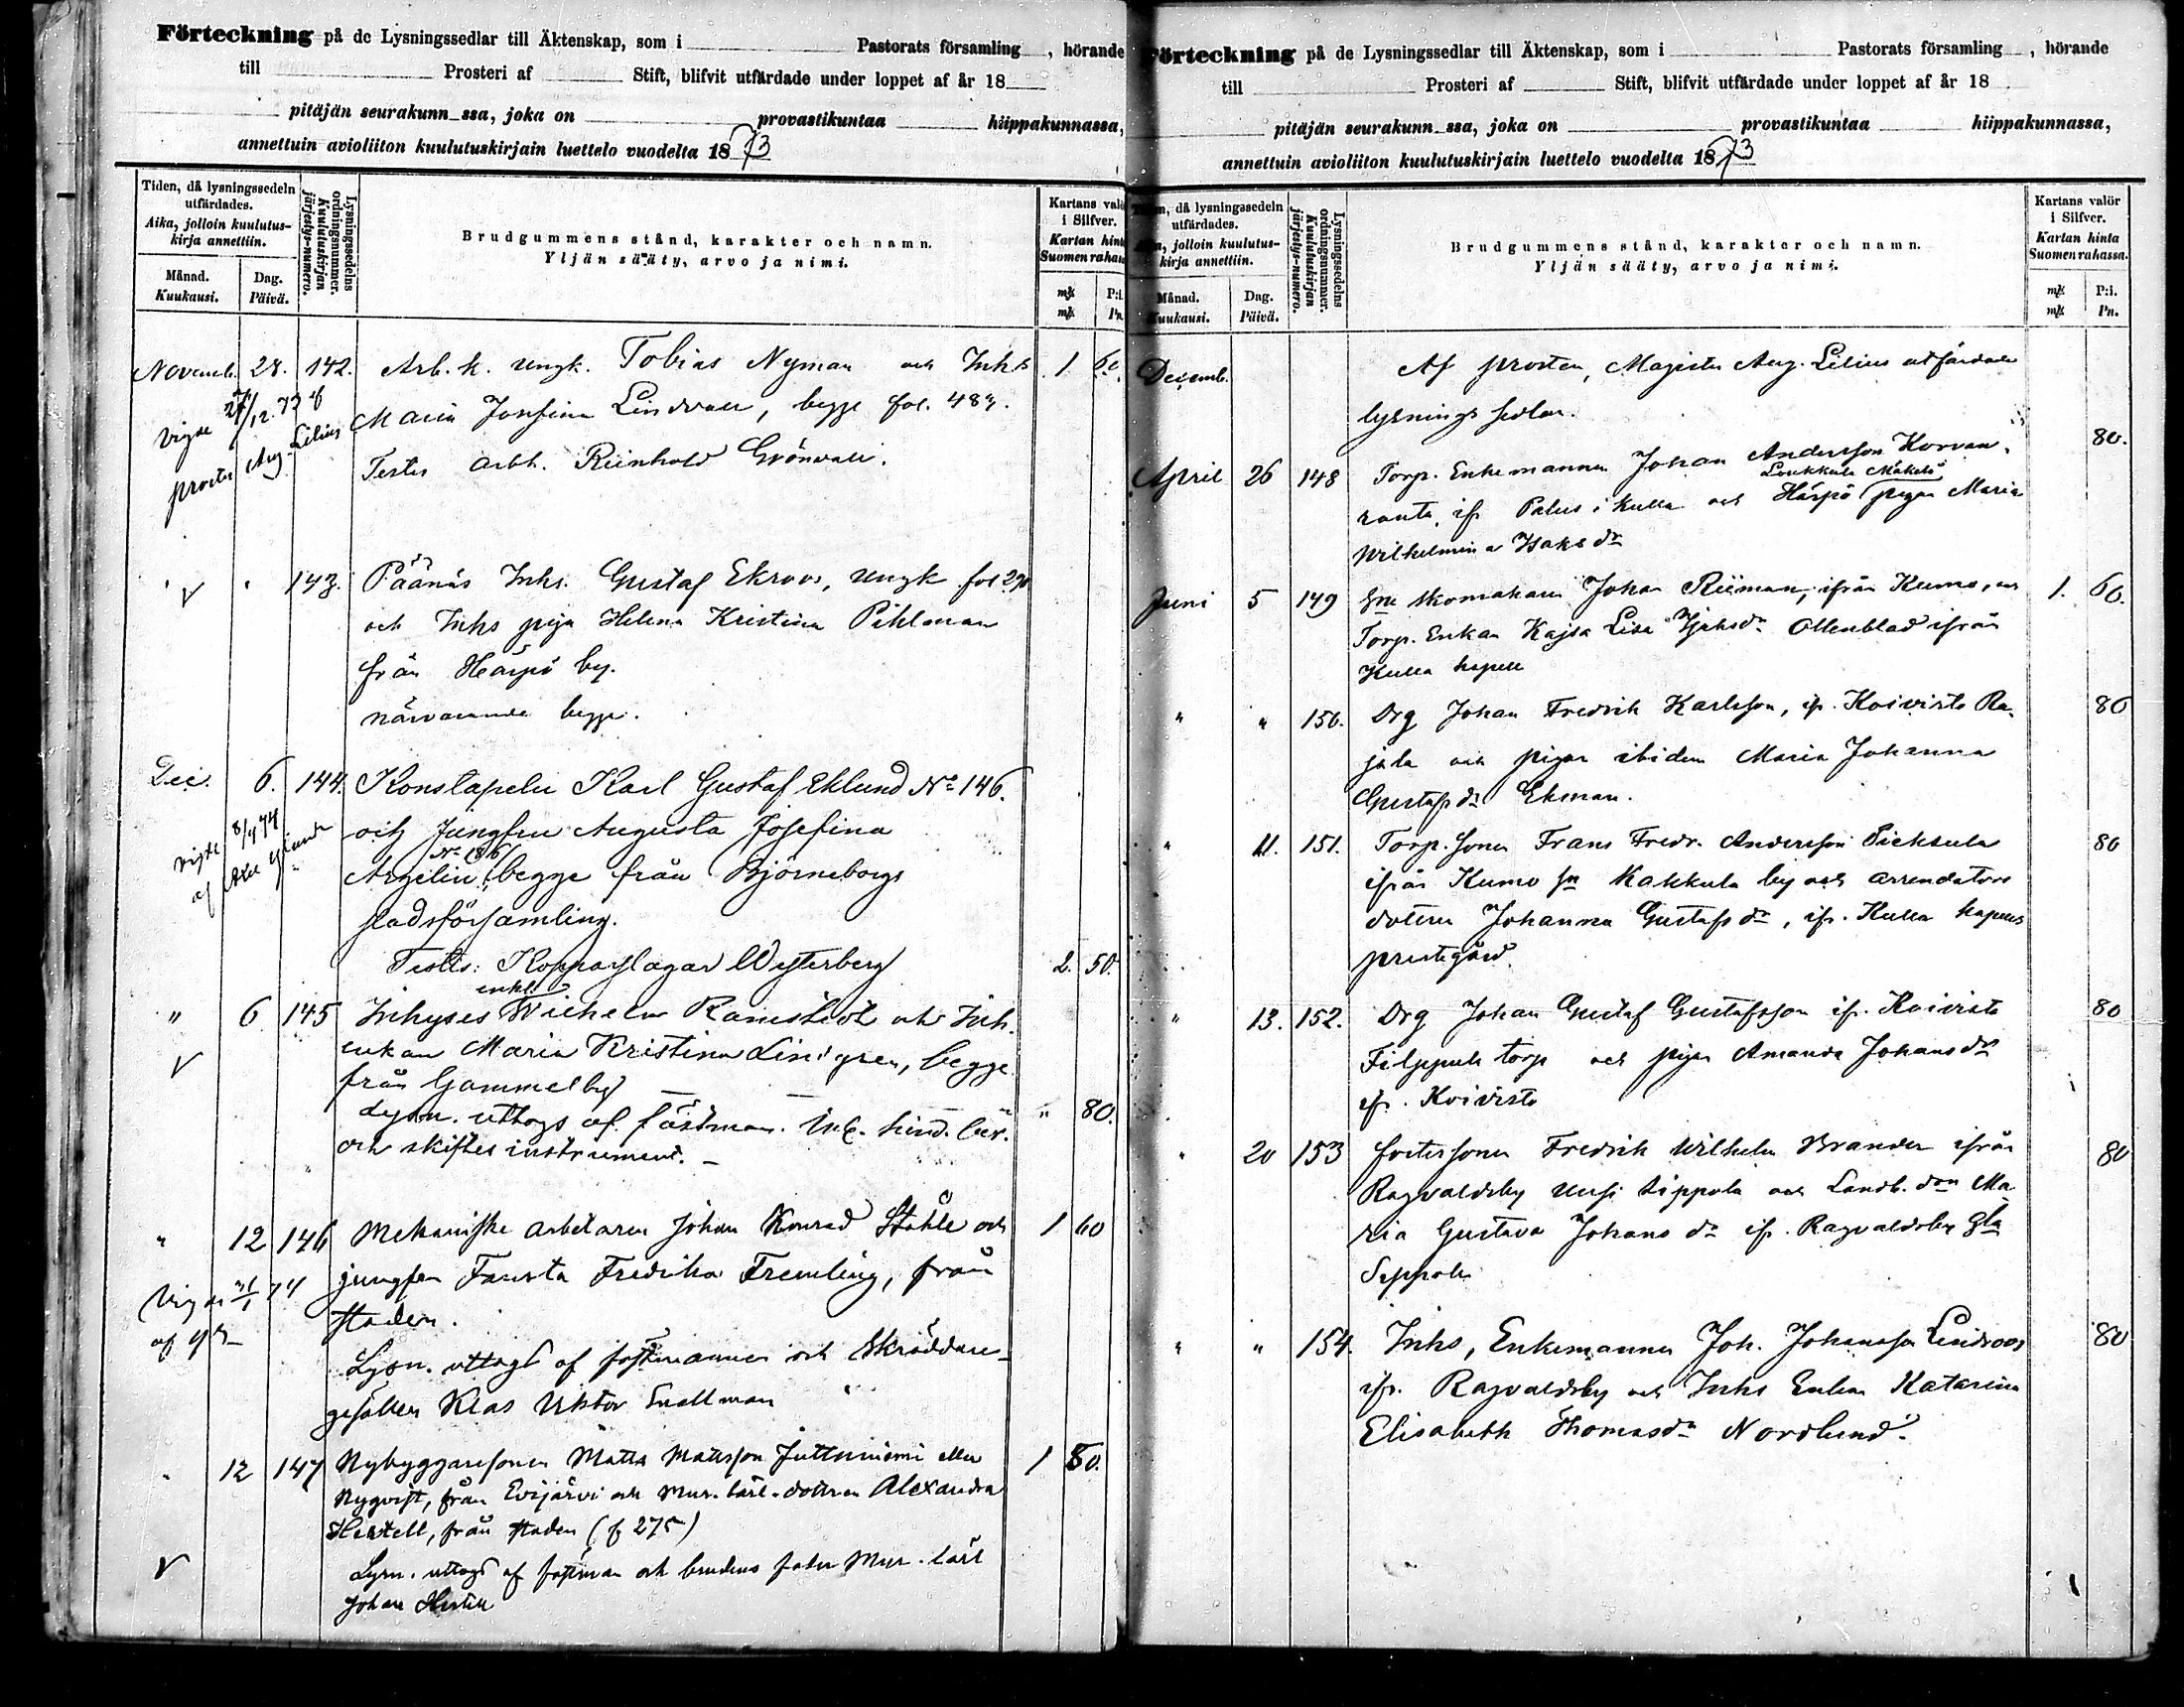 Förteckning på de Lysningssedlar till Äktenskap, som i Pastorats församling , hörande
till Prosteri af Stift, blifvit utfärdade under loppet af år 18
pitäjän seurakunn ssa, joka on provastikuntaa hiippakunnassa,
annettuin avioliiton kuulutuskirjain luettelo vuodelta 1873
Tiden, då lysningssedeln utfärdades.
Aika, jolloin kuulutus-kirja annettiin.
Månad. Kuukausi.
Dag. Päivä.
Lysningssedelns ordningsnummer.
Kuulutuskirjan järjestys-numero.
Brudgummens stånd, karakter och namn.
Yljän sääty, arvo ja nimi.
Kartans valör i Silfver.
Kartan hinta Suomen rahassa.
mk P:i.
mk Pn.
Novemb. 28. 142. Arb. k. ungk. Tobias Nyman och Inhs 1 60
Maria Josefina Lindvall, begge fol. 487.
Testes arbk. Reinhold Grönvall.
Vigde 27/12.73 af
proster Aug. Lilius
143. Päänäs Inhs. Gustaf Ekroos, ungk fol 290
och Inhs piga Helena Kristina Pihlman
från Härpö by.
närvarande begge.
Dec. 6. 144. Konstapeln Karl Gustaf Eklund No 146.
och Jungfru Augusta Josefina
No 186
Argelin, begge från Björneborgs
stadsförsamling.
Testes: Kopparslagar Westerberg 2. 50.
enkl.
" 6 145 Inhyses Wilhelm Ramstedt och Inh.
enkan Maria Kristina Lindgren, begge
från Gammelby
Lysn. uttogs af fästman. Inl. hind. bev. " 80.
och skiftesinstrument.
" 12 146 Mekaniske arbetaren Johan Konrad Ståhle och 1 60
jungfru Fausta Fredrika Fremling, från
staden.
Lysn. uttogs af fästmannen och Skräddare-
gesällen Klas Viktor Snellman
12 147 Nybyggaresonen Matts Mattsson Juttuniemi eller 1 80.
Nyqvist, från Evijärvi och Mur. lärl. dottren Alexandra
Hertell, från staden (f 275)
Lysn. uttogs af fästman och brudens fader Mur. lärl
Johan Hertell
Förteckning på de Lysningssedlar till Äktenskap, som i Pastorats församling , hörande
till Prosteri af Stift, blifvit utfärdade under loppet af år 18
pitäjän seurakunn ssa, joka on provastikuntaa hiippakunnassa,
annettuin avioliiton kuulutuskirjain luettelo vuodelta 1873
då lysningssedeln utfärdades.
jolloin kuulutus-kirja annettiin.
Månad. Kuukausi.
Dag. Päivä.
Lysningssedelns ordningsnummer.
Kuulutuskirjan järjestys-numero.
Brudgummens stånd, karakter och namn.
Yljän sääty, arvo ja nimi.
Kartans valör i Silfver.
Kartan hinta Suomen rahassa.
mk P:i.
mk Pn.
Decemb. Af prosten, Magister Aug. Lilius utfärdade
lysnings sedlar.
April 26 148 Torp. Enkemannen Johan Andersson Korvan- 80.
Loukkula Mäkelä
ranta, ifr Palus i Kulla och Härpö pigan Maria
Wilhelmina Isaks dr
Juni 5 149 Sne skomakare Johan Riiman, ifrån Kumo, och 1. 60.
Torp. Enkan Kajsa Lisa Ollenblad ifrån
Kulla kapell
" " 150. Drg Johan Fredrik Karlsson, ifr. Koivisto Ra- 80
jala och pigan ibidem Maria Johanna
Gustafs dr Ekman.
" 11. 151. Torp. sonen Frans Fredr. Andersson 80
ifrån Kumo sn Kakkula by och arrendators
dottren Johanna Gustafs dr, ifr. Kulla kapells
prestgård.
" 13. 152. Drg Johan Gustaf Gustafsson ifr. Koivisto 80
Filppula torp och pigan Amanda Johans dr
ifr. Koivisto
" 20 153 fostersonen Fredrik Wilhelm Brander ifrån 80
Ragvaldsby Uusi Sippola och Landb. don Ma
ria Gustava Johans dr ifr. Ragvaldsby Gla
Seppola
" " 154. Inhs, Enkemannen Joh. Johansson Lindroos 80
ifr. Ragvaldsby och Inhs Enkan Katarina
Elisabeth Thomasdr Nordlund.